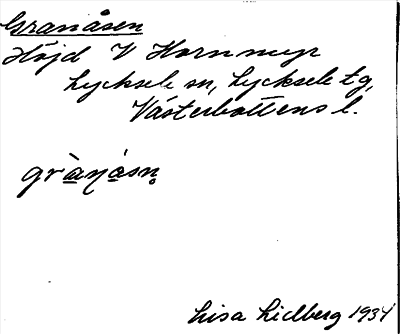 Granåsen
Höjd V Hornmyr
Lycksele sn, Lycksele tg,
Västerbottens l.
grànásn̥
Lisa Lidberg 1934